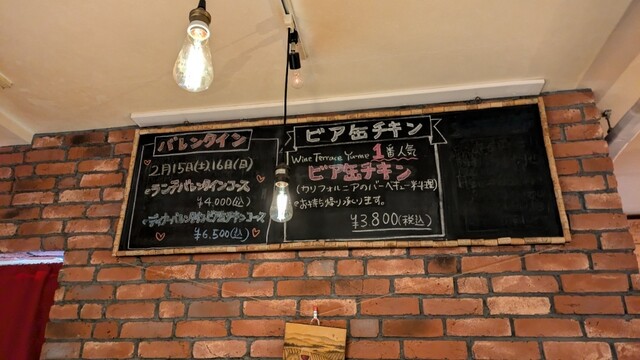 バレンタイン
2月15日(土)16日(日)
ランチバレンタインコース
¥4,000(込)
ディナーバレンタインビア缶チキンコース
¥6,500(込)
ビア缶チキン
Wine Terrace Yume 1番人気
ビア缶チキン
(カリフォルニアのバーベキュー料理)
お持ち帰り承ります。
¥3800(税込)